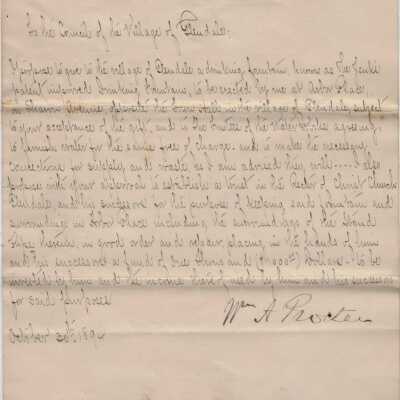 To the Council of the Village of Glendale:
I propose to give to the village of Glendale a drinking fountain, known as The Jenks
patent improved Drinking Fountain, to be erected by me at Arbor Place,
on Sharon Avenue, opposite the Town Hall in the village of Glendale, subject
to your acceptance of the gift, and to the Trustees of the Water Works agreeing,
to furnish water for the same free of charge, and to make the necessary
connections for supply and waste, as I am advised they will. I also
propose with your approval to establish a trust in the Rector of Christ Church
Glendale, and his successors for the purpose of keeping said fountain and
surroundings in Arbor Place including the surroundings of the Stand
Pipe therein, in good order and repair, placing in the hands of him
and his successors a fund of One Thousand ($1000.00) Dollars - to be
invested by him and the income thereof used by him and his successors
for said purposes
Wm A Procter
October 30th 1894